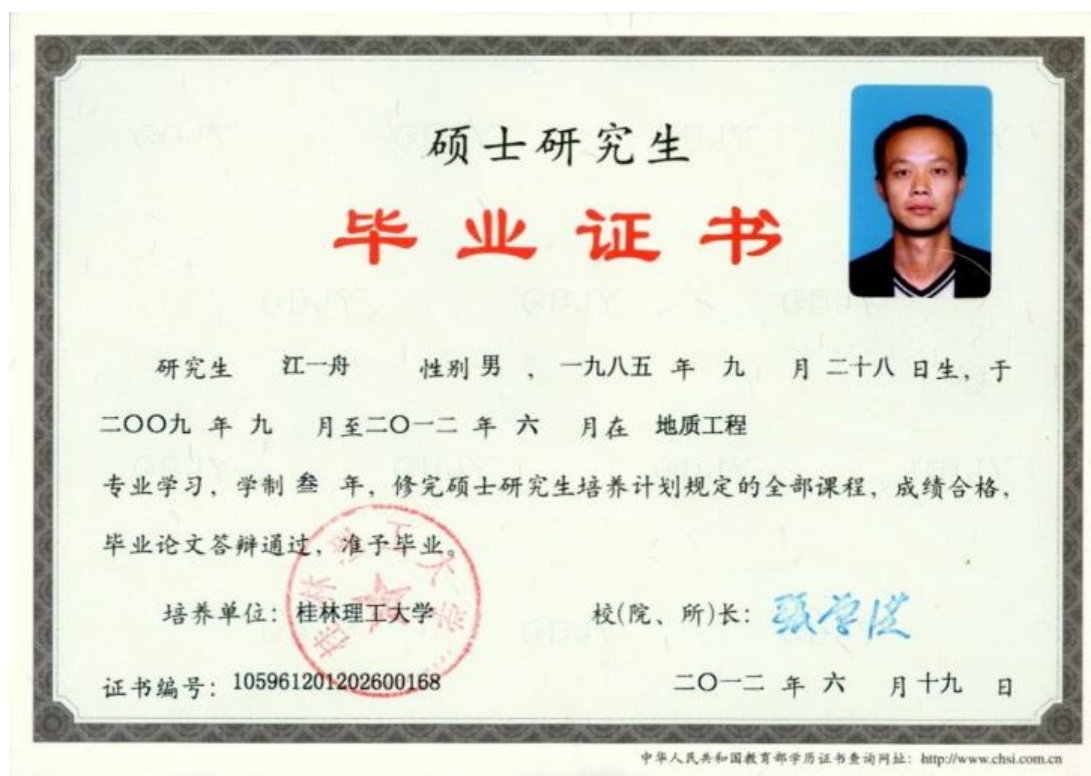 硕士研究生
毕业证书
研究生 江一舟 性别 男 ， 一九八五 年 九 月 二十八 日生，于
二〇〇九 年 九 月至二〇一二 年 六 月在 地质工程
专业学习，学制 叁 年，修完硕士研究生培养计划规定的全部课程，成绩合格，
毕业论文答辩通过，准予毕业。
桂林理工大学
培养单位：桂林理工大学 校(院、所)长：張学洪
证书编号：105961201202600168 二〇一二 年 六 月 十九 日
中华人民共和国教育部学历证书查询网址：http://www.chsi.com.cn